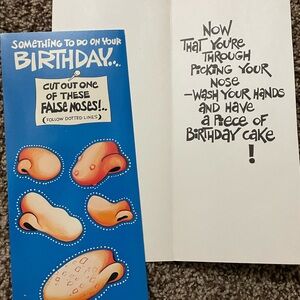 SOMETHING TO DO ON YOUR
BIRTHDAY...
CUT OUT ONE
OF THESE
FALSE NOSES!..
(FOLLOW DOTTED LINES)
NOW
THAT YOU'RE
THROUGH
PICKING YOUR
NOSE
—WASH YOUR HANDS
AND HAVE
A PIECE OF
BIRTHDAY CAKE
!